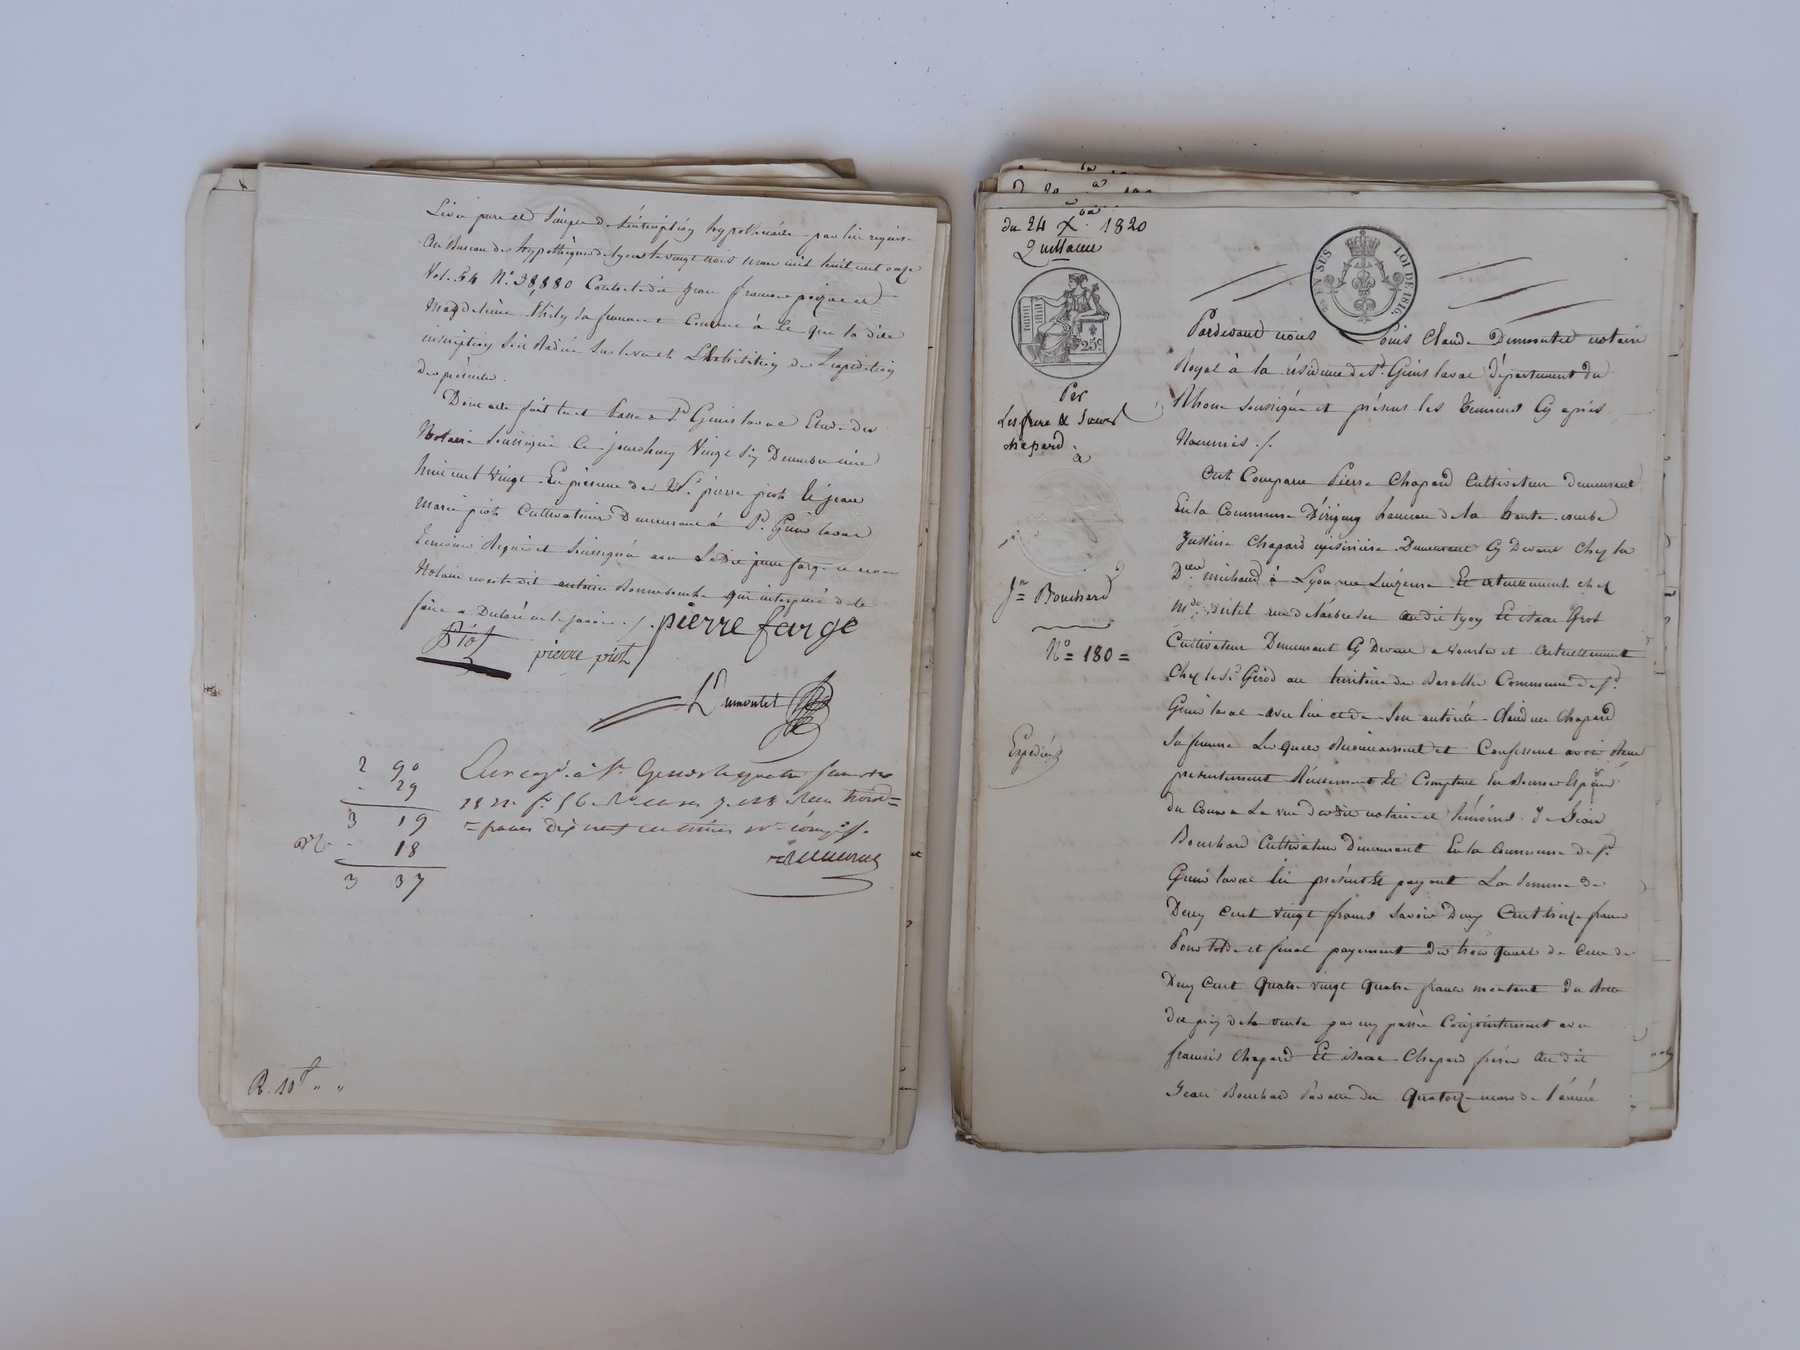 Levé pure et simple de l'inscription hypothécaire par lui requise
Au Bureau des hypothèques de Lyon le vingt trois mars mil huit cent onze
Vol. 54 N.° 38,880 Contre ledit jean francois et
Magdeleine sa femme et Consent à ce que la dite
inscription soit Radiée sur le vu et L'Exhibition de L'expedition
des présentes.
Dont acte fait lu et Passé à S.t Genis laval Etude du
Notaire Soussigné Ce jourd'huy Vingt Six Decembre mil
huit cent vingt. En présence de pierre piot & jean
Marie piot Cultivateurs Demeurant à S.t Genis laval
temoins Requis et Soussignés avec Ledit pierre farge et nous
Notaire non ledit antoine Bonnebouche qui interpellé de le
faire a Déclaré ne le savoir ./.
pierre farge
Piot pierre piot
L.s Dumontet
2 90
- 29
3 19
- 18
3 37
Enreg.é à S.t Genis le quatre janvier
1821 f.° 56 R.° Reçu trois
francs dix neuf centimes
R. 10f " "
du 24 Xbre 1820
Quittance
25c
Par
Les frere & Soeurs
chapard
à
J.n Bouchard
N.° = 180 =
Expédiée
EN SUS LOI DE 1816.
Pardevant nous Louis Claude Dumontet notaire
Royal à la résidence de S.t Genis laval département du
Rhone soussigné et présens les temoins Cy après
Nommés ./.
Ont Comparu Pierre Chapard Cultivateur demeurant
En la Commune D'irigny hameau de la haute combe
Justine Chapard cuisinière Demeurant Cy Devant Chez la
D.lle michaud à Lyon rue Luizerne Et actuellement chez
M.de rue de audit Lyon Et isaac Grot
Cultivateur Demeurant Cy Devant a vourles et actuellement
Chez le S.r Gérod au territoire de Commune de S.t
Genis laval avec lui et de son autorité Claudine Chapard
Sa femme Lesquels Reconnaissent et Confessent avoir Reçu
présentement Réellement Et Comptant En Bonnes Espèces
du Cours a La vue du dit notaire et témoins, De Jean
Bouchard Cultivateur Demeurant En la Commune de S.t
Genis laval ici présent & payant La Somme de
Deux Cent vingt francs Savoir Deux Cent treize francs
Pour solde et final payement des trois quart de Celle de
Deux Cent Quatre vingt Quatre francs montant du Reste
du prix de la vente par eux passée Conjointement avec
francois Chapard Et isaac Chapard frères au dit
Jean Bouchard Par acte du Quatorze mars de l'année